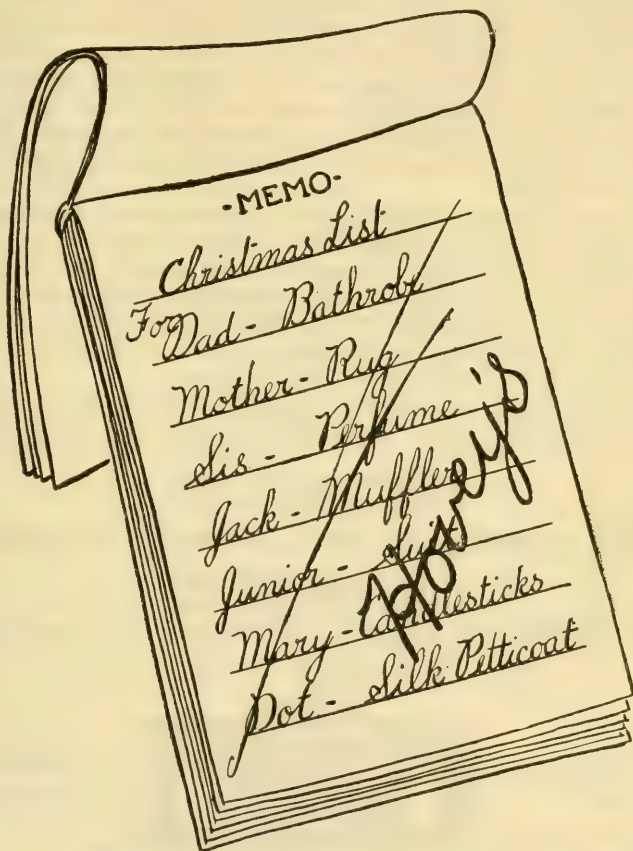 ·MEMO·
Christmas List
For
Dad - Bathrobe
Mother - Rug
Sis - Perfume
Jack - Muffler
Junior - Suit
Mary - Candlesticks
Dot - Silk Petticoat
Hovey's